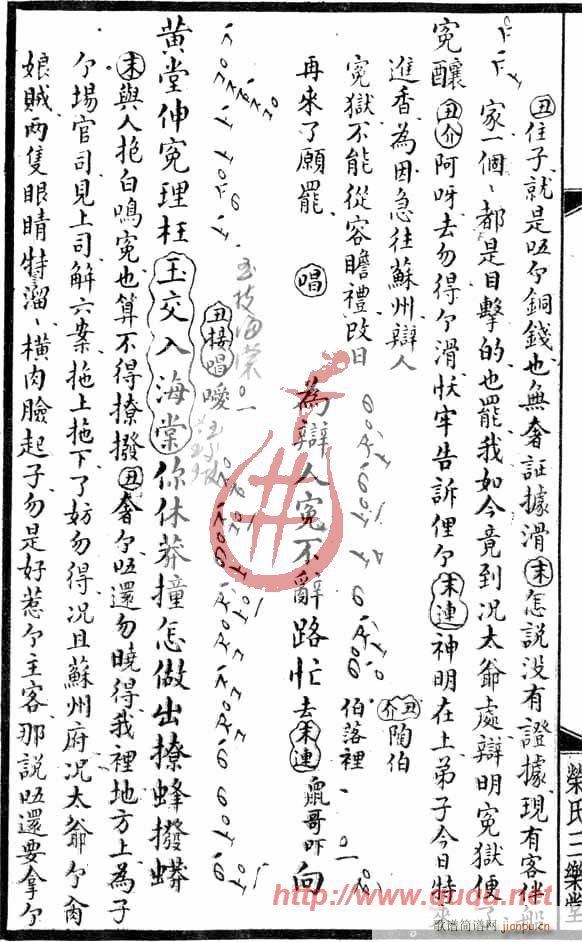 丑 住子就是㕶亇銅錢也無奢証據滑 末 怎說没有證據現有客伴船
家一個、都是目擊的也罷我如今竟到况太爺處辯明寃獄便了
寃釀 丑介 阿呀去勿得亇滑怢牢告訴俚亇 末連 神明在上弟子今日特來
進香為因急往蘇州辯人
寃獄不能從容瞻禮改日
再來了願罷 唱 為辯人寃不辭路忙 去 末連 鼠哥吓 向
丑介 陶伯伯落裡
黄堂伸寃理枉 玉交入海棠 你休莽撞怎做出撩蜂撥蟒
玉枝海棠
丑接唱 噯
末 與人抱白鳴寃也算不得撩撥 丑 奢亇㕶還勿曉得我裡地方上為子
亇場官司見上司解六案拖上拖下了妨勿得况且蘇州府况太爺亇禽
娘賊两隻眼睛特溜、横肉臉起子勿是好惹亇主客那說㕶還要拿亇
榮氏三樂堂
http://www.ququ.net
歌谱简谱网
jianpu.cn